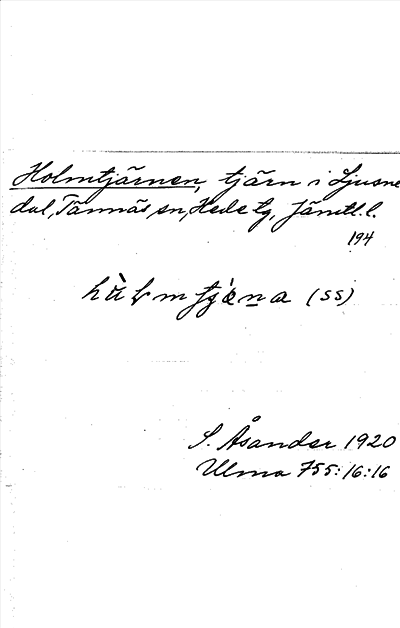 Holmtjärnen, tjärn i Ljusne
dal, Tännäs sn, Hede tg, Jämtl. l.
194
(ss)
S. Åsander 1920
Ulma 755:16:16